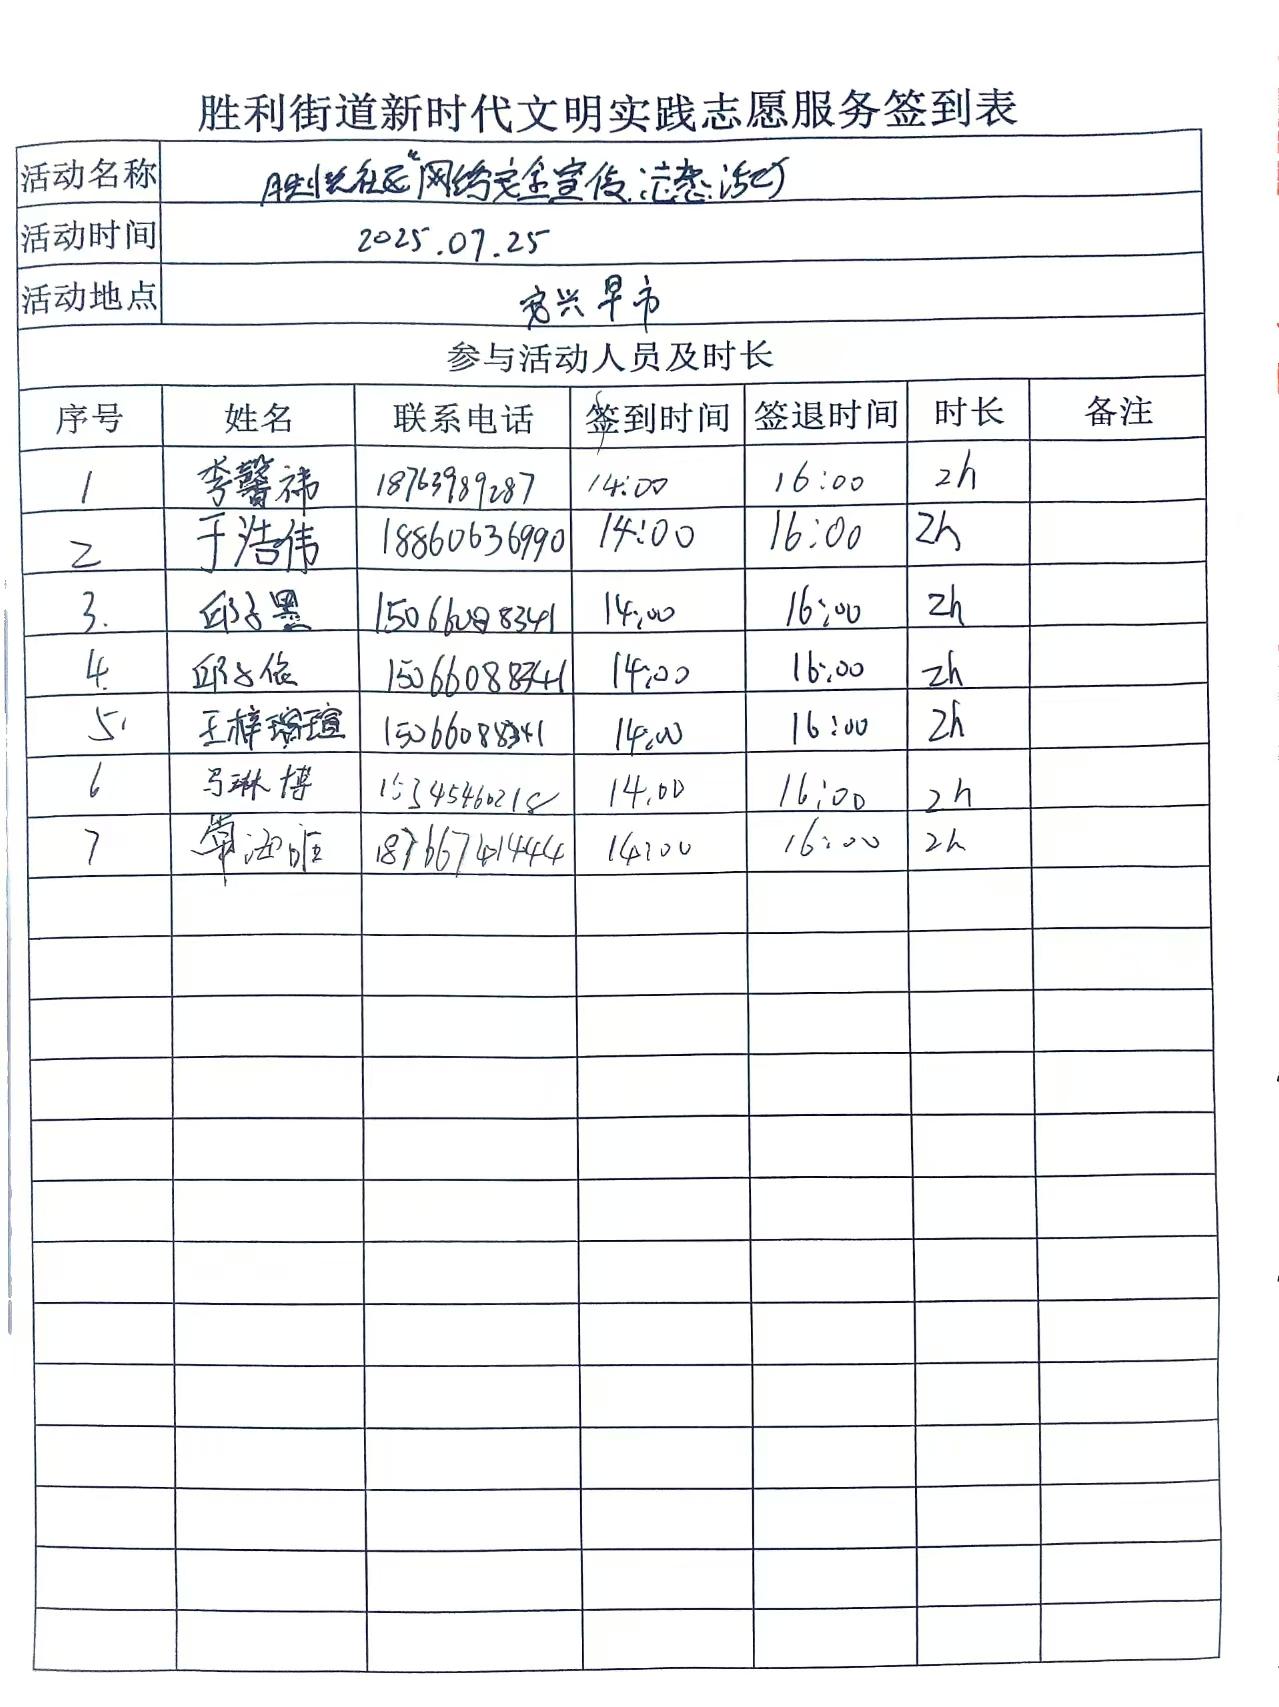 胜利街道新时代文明实践志愿服务签到表
活动名称 "网络安全宣传 志愿活动
活动时间 2025.07.25
活动地点 兴早市
参与活动人员及时长
序号 姓名 联系电话 签到时间 签退时间 时长 备注
1 李馨祎 18763989287 14:00 16:00 2h
2 于浩伟 18860636990 14:00 16:00 2h
3. 邱子墨 15066088341 14:00 16:00 2h
4. 邱子依 15066088341 14:00 16:00 2h
5. 王梓瑄 15066088341 14:00 16:00 2h
6 马琳博 14:00 16:00 2h
7 18766741444 14:00 16:00 2h